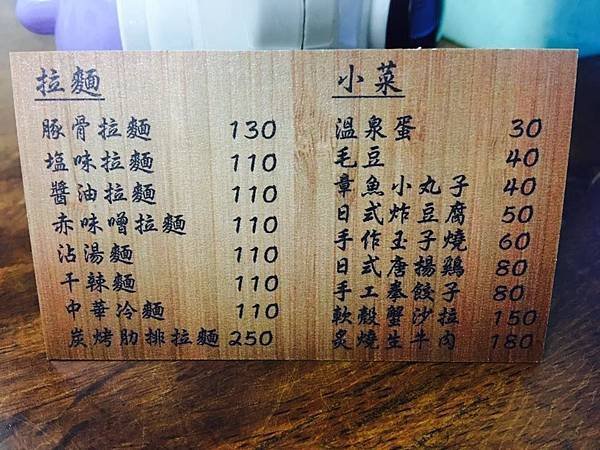 拉麵
豚骨拉麵 130
塩味拉麵 110
醬油拉麵 110
赤味噌拉麵 110
沾湯麵 110
干辣麵 110
中華冷麵 110
炭烤肋排拉麵 250
小菜
溫泉蛋 30
毛豆 40
章魚小丸子 40
日式炸豆腐 50
手作玉子燒 60
日式唐揚鷄 80
手工拳餃子 80
軟殼蟹沙拉 150
炙燒生牛肉 180